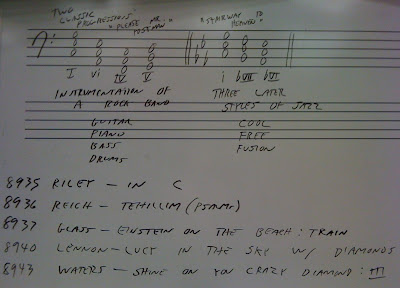 TWO CLASSIC PROGRESSIONS
"PLEASE MR. POSTMAN"
"STAIRWAY TO HEAVEN"
I vi IV V i bVII bVI
INSTRUMENTATION OF A ROCK BAND
GUITAR
PIANO
BASS
DRUMS
THREE LATER STYLES OF JAZZ
COOL
FREE
FUSION
8935 RILEY - IN C
8936 REICH - TEHILLIM (PSALMS)
8937 GLASS - EINSTEIN ON THE BEACH: TRAIN
8940 LENNON - LUCY IN THE SKY W/ DIAMONDS
8943 WATERS - SHINE ON YOU CRAZY DIAMOND: III